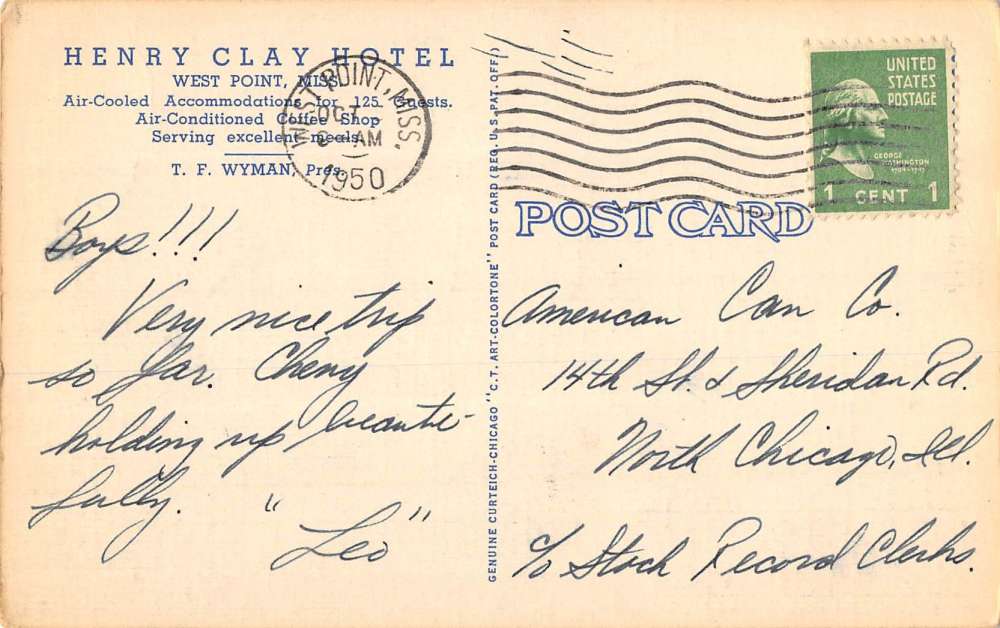 HENRY CLAY HOTEL
WEST POINT, MISS.
Air-Cooled Accommodations for 125 Guests.
Air-Conditioned Coffee Shop
Serving excellent meals.
T. F. WYMAN, Pres.
WEST POINT, MISS.
OCT
AM
1950
Boys!!!
Very nice trip
so far. Chevy
holding up beauti-
fully.
"Leo"
GENUINE CURTEICH-CHICAGO "C.T. ART-COLORTONE" POST CARD (REG. U.S. PAT. OFF.)
UNITED
STATES
POSTAGE
GEORGE
WASHINGTON
1 CENT 1
POST CARD
American Can Co.
14th St. & Sheridan Rd.
North Chicago, Ill.
c/o Stock Record Clerks.